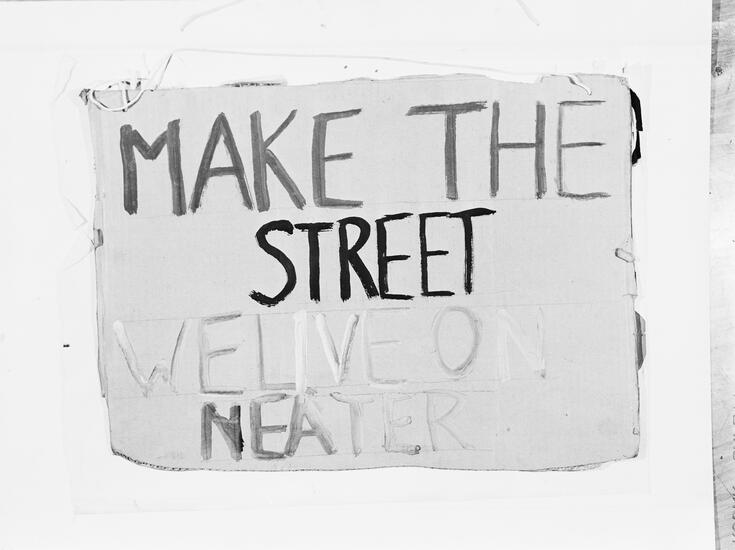 MAKE THE
STREET
WE LIVE ON
NEATER